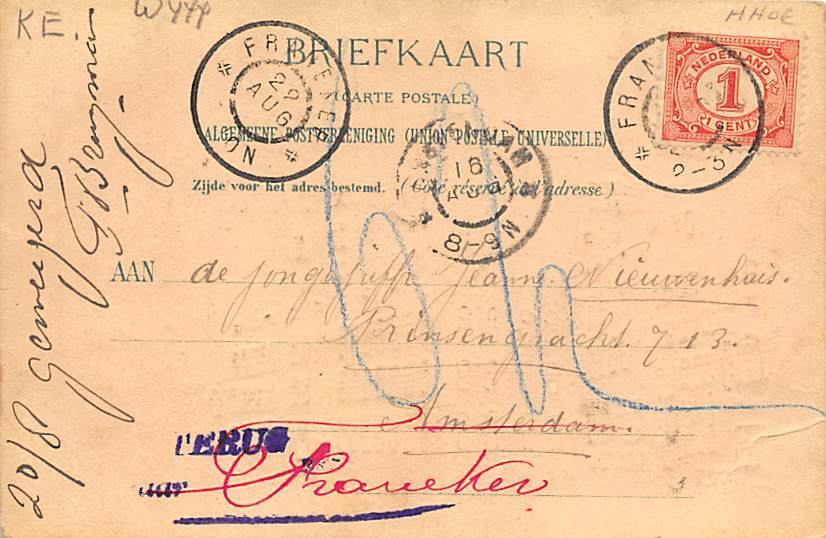 KE
W444
HHOE
BRIEFKAART
(CARTE POSTALE)
ALGEMEENE POSTVEREENIGING (UNION POSTALE UNIVERSELLE)
Zijde voor het adres bestemd. (Côté réservé à l'adresse)
FRANEKER
29
AUG
NEDERLAND
1
1 CENT
FRAN
2-3N
AMSTERDAM
16
AUG
8-9N
AAN de jongejuffr. Jeanne Nieuwenhuis.
Prinsengracht 713.
Amsterdam.
TERUG
Franeker
20/8 geweigerd